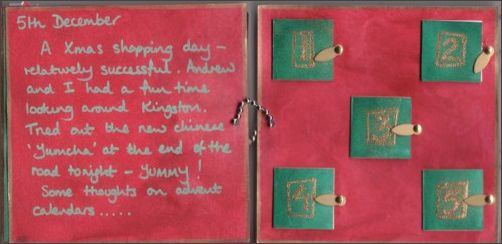 5th December
A Xmas shopping day -
relatively successful. Andrew
and I had a fun time
looking around Kingston.
Tried out the new chinese
'Yumcha' at the end of the
road tonight - YUMMY!
Some thoughts on advent
calendars.....
1
2
3
4
5